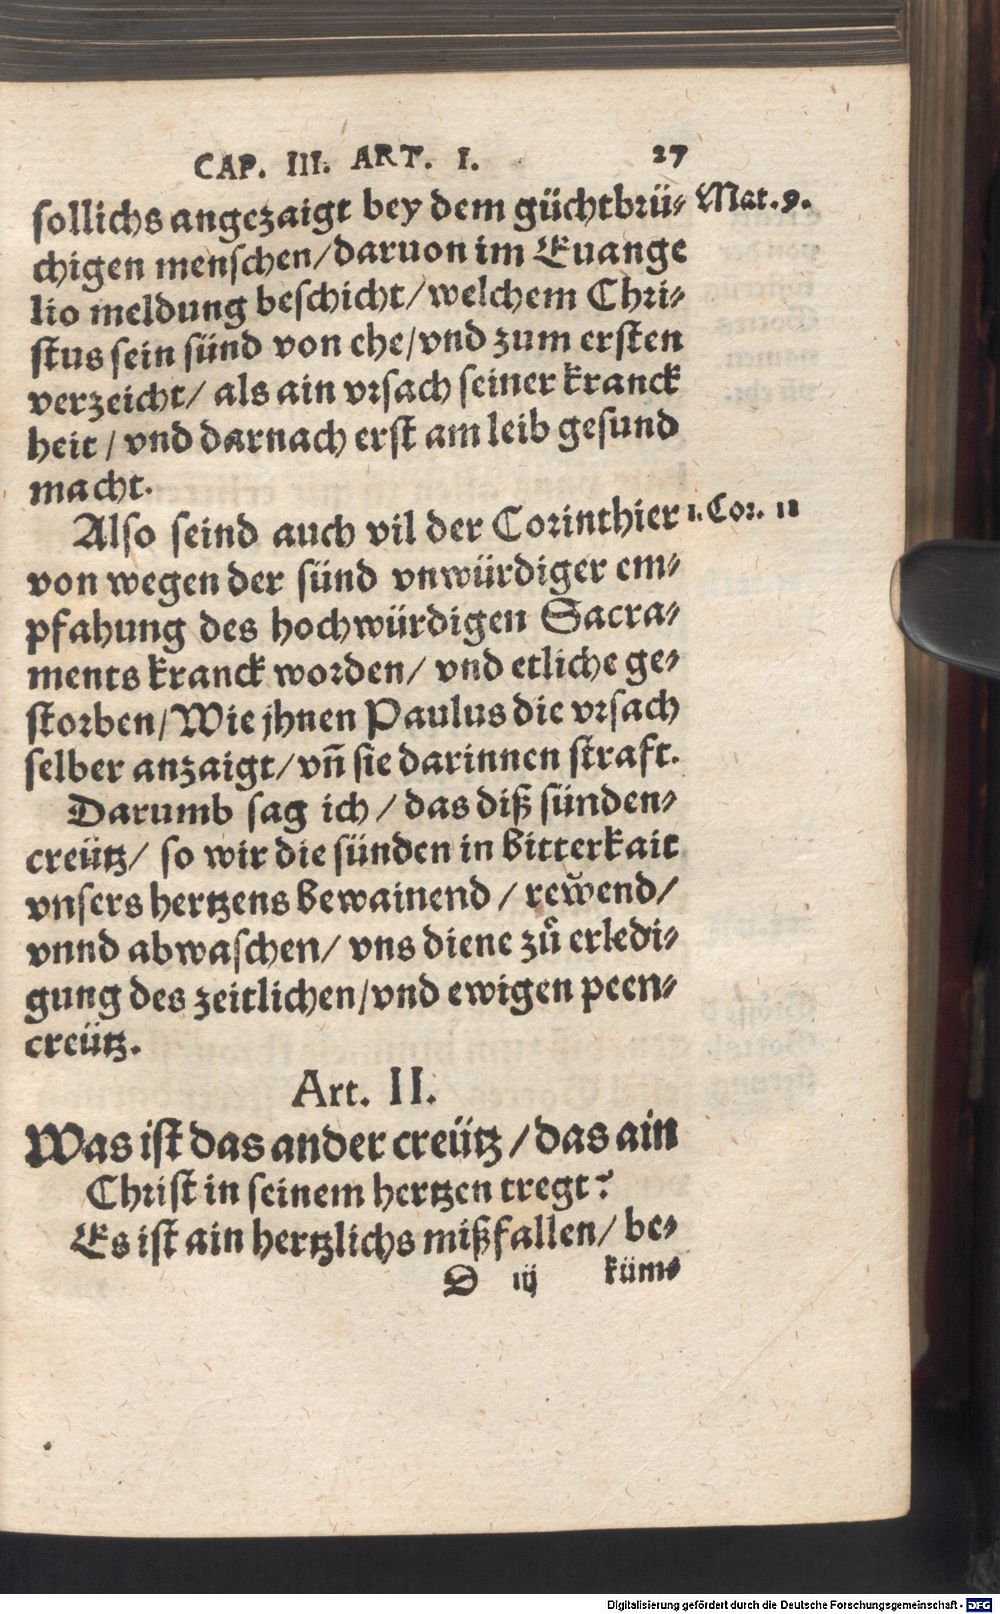 CAP. III. ART. I. 27
sollichs angezaigt bey dem güchtbrü- Mat. 9.
chigen menschen/daruon im Euange
lio meldung beschicht/welchem Chri-
stus sein sünd von ehe/vnd zum ersten
verzeicht/ als ain vrsach seiner kranck
heit / vnd darnach erst am leib gesund
macht.
Also seind auch vil der Corinthier 1. Cor. 11
von wegen der sünd vnwürdiger em-
pfahung des hochwürdigen Sacra-
ments kranck worden/ vnd etliche ge-
storben/Wie jhnen Paulus die vrsach
selber anzaigt/vñ sie darinnen straft.
Darumb sag ich / das diß sünden-
creütz/ so wir die sünden in bitterkait
vnsers hertzens bewainend / rew̆end/
vnnd abwaschen/ vns diene zů erledi-
gung des zeitlichen/vnd ewigen peen-
creütz.
Art. II.
Was ist das ander creütz/das ain
Christ in seinem hertzen tregt?
Es ist ain hertzlichs mißfallen/ be-
D iij küm-
Digitalisierung gefördert durch die Deutsche Forschungsgemeinschaft - DFG